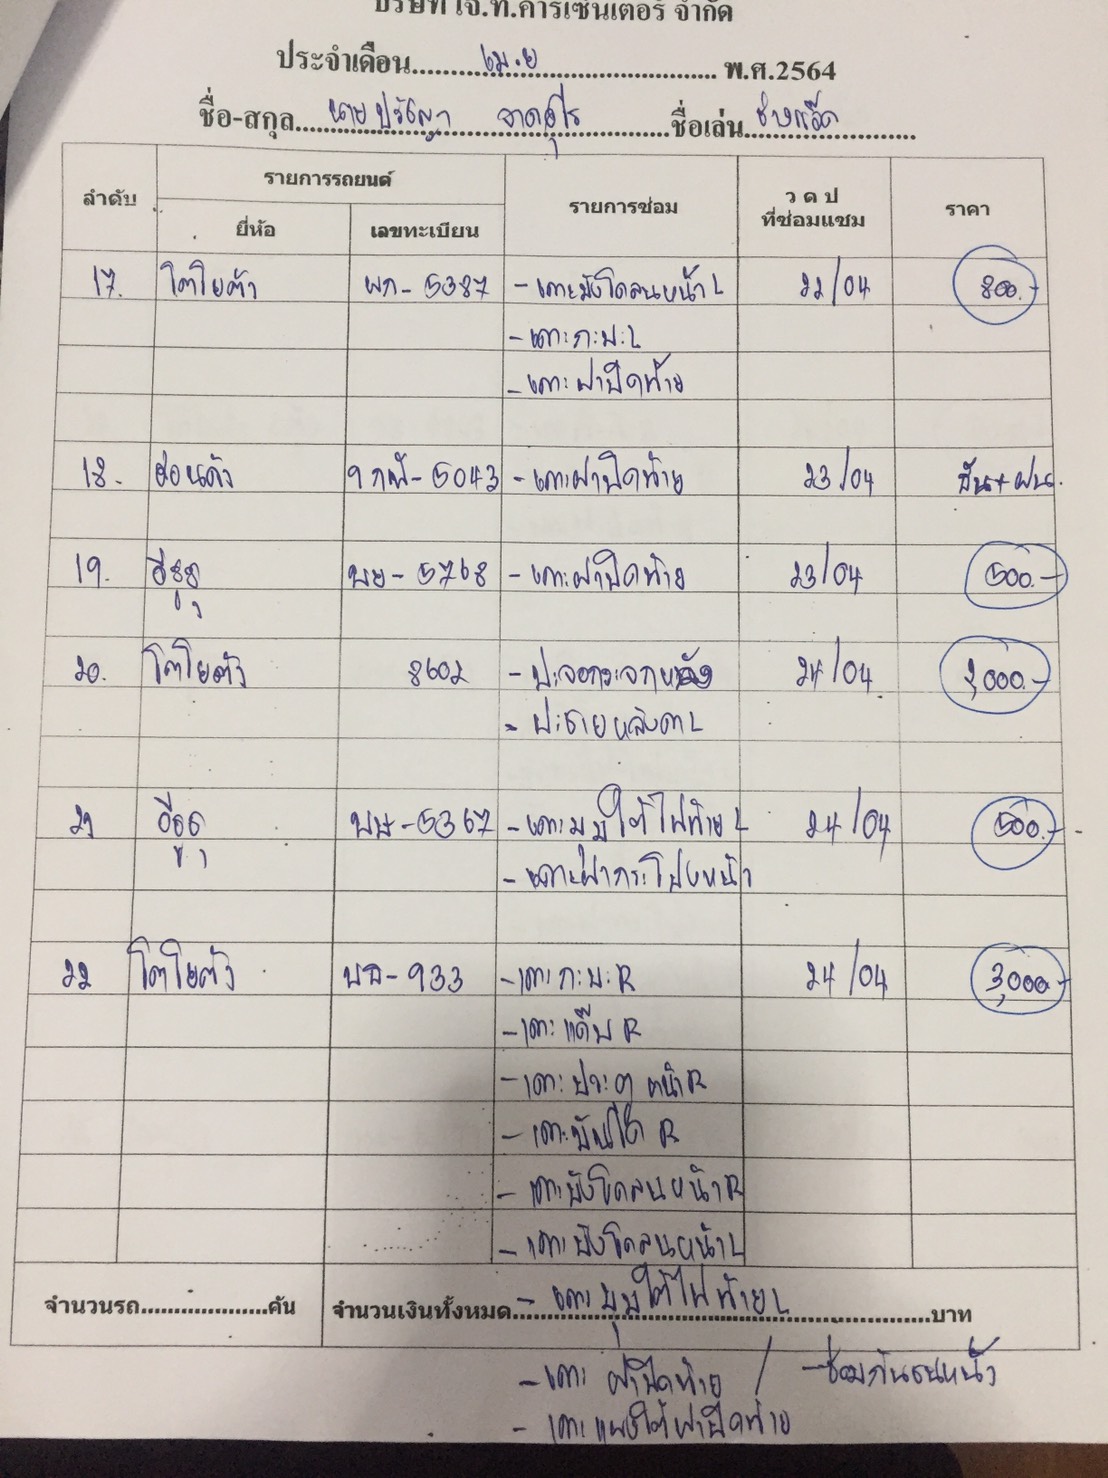 บริษัท เจ.ที.คาร์เซ็นเตอร์ จำกัด
ประจำเดือน เม.ย พ.ศ.2564
ชื่อ-สกุล นายปริญญา ชื่อเล่น ช่างแอ๊ด
ลำดับ รายการรถยนต์ รายการซ่อม ว ด ป ที่ซ่อมแซม ราคา
ยี่ห้อ เลขทะเบียน
17. โตโยต้า ผก-5387 -เคาะบังโคลนหน้าL 22/04 800.-
-เคาะก.บ.L
-เคาะฝาปิดท้าย
18. ฮอนด้า 1กฬ-5043 -เคาะฝาปิดท้าย 23/04
19. อีซูซุ บย-5768 -เคาะฝาปิดท้าย 23/04 500.-
20. โตโยต้า 8602 -ปะจอกระจกหลัง 24/04 2,000.-
-ปะชายหลังคาL
21 อีซูซุ บษ-5367 -เคาะมุมใต้ไฟท้ายL 24/04 500.-
-เคาะฝากระโปรงหน้า
22 โตโยต้า บจ-933 -เคาะก.บ.R 24/04 3,000.-
-เคาะแค๊บR
-เคาะประตูหน้าR
-เคาะบันไดR
-เคาะบังโคลนหน้าR
-เคาะบังโคลนหน้าL
-เคาะมุมใต้ไฟท้ายL
จำนวนรถ....................คัน จำนวนเงินทั้งหมด....................บาท
-เคาะฝาปิดท้าย / -ซ่อมกันชนหน้า
-เคาะแผงใต้ฝาปิดท้าย